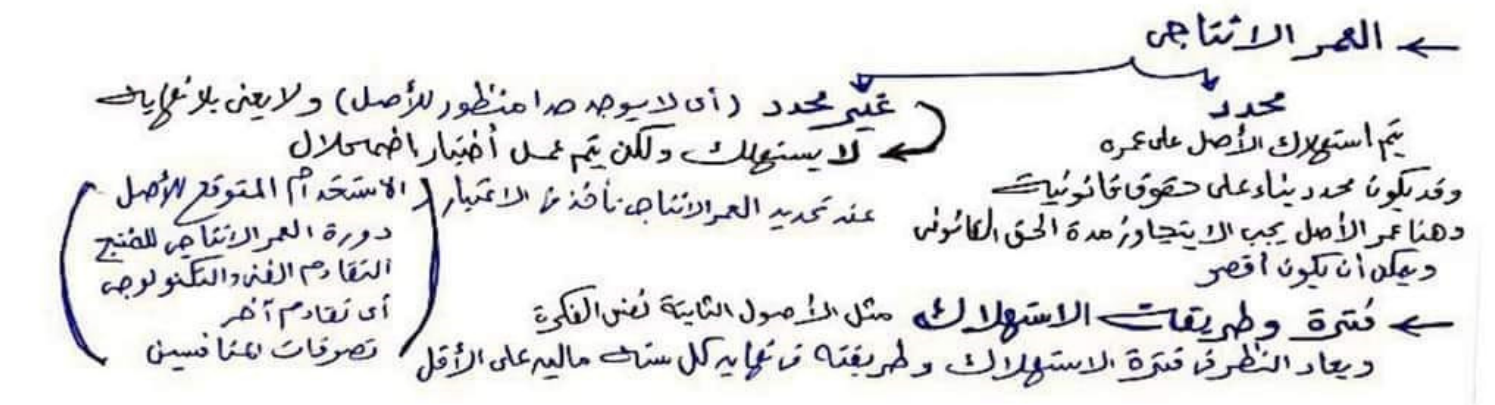 ← العمر الانتاجى
محدد
يتم استهلاك الأصل على عمره
وقد يكون محدد بناء على حقوق قانونية
وهنا عمر الأصل يجب الا يتجاوز مدة الحق القانونى
ويمكن أن يكون أقصر
غير محدد (أى لا يوجد مدا منظور للأصل) ولا يعنى بلا نهاية
لا يستهلك ولكن يتم عمل أختبار اضمحلال
عند تحديد العمر الانتاجى نأخذ فى الاعتبار
الاستخدام المتوقع للأصل
دورة العمر الانتاجى للمنتج
التقادم الفنى والتكنولوجى
أى تقادم آخر
تصرفات المنافسين
← فترة وطريقة الاستهلاك مثل الأصول الثابتة نفس الفكرة
ويعاد النظر فى فترة الاستهلاك وطريقته فى نهاية كل سنة مالية على الأقل